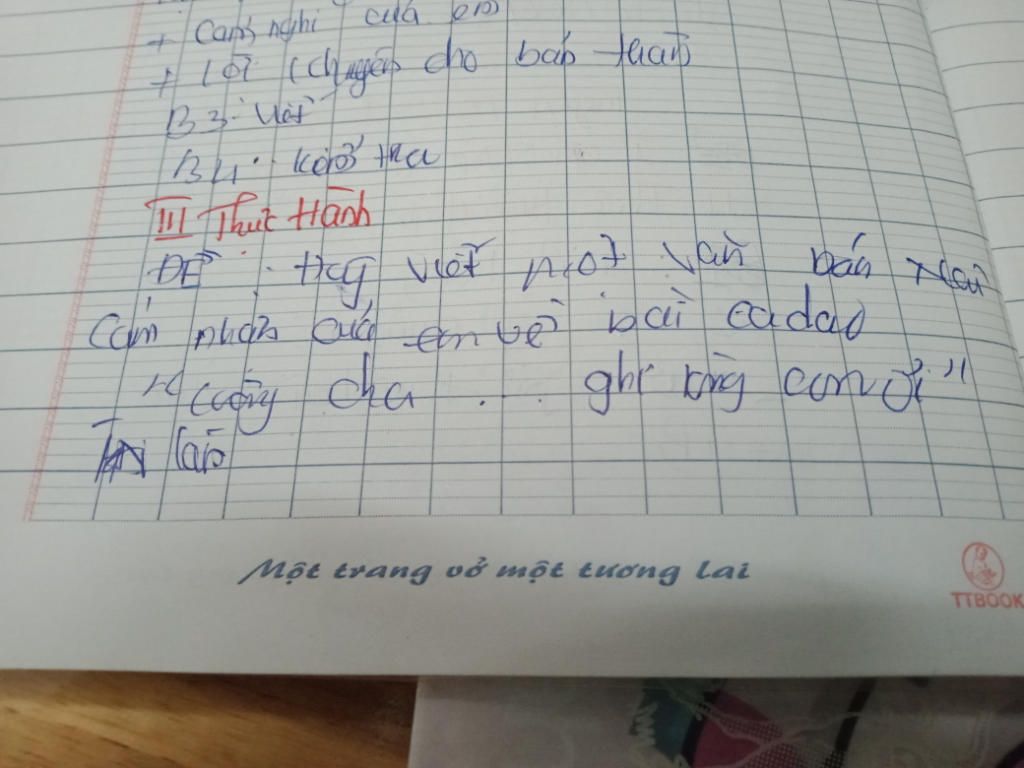 + Cảm nghĩ của em
+ Lời (chuyện cho bản thân
B3: Viết
B4: kiểm tra
III Thực Hành
ĐỀ: Hãy viết một văn bản nêu
Cảm nhận của em về bài ca dao
" Công cha ... ghi lòng con ơi "
làm
Một trang vở một tương lai
TTBOOK